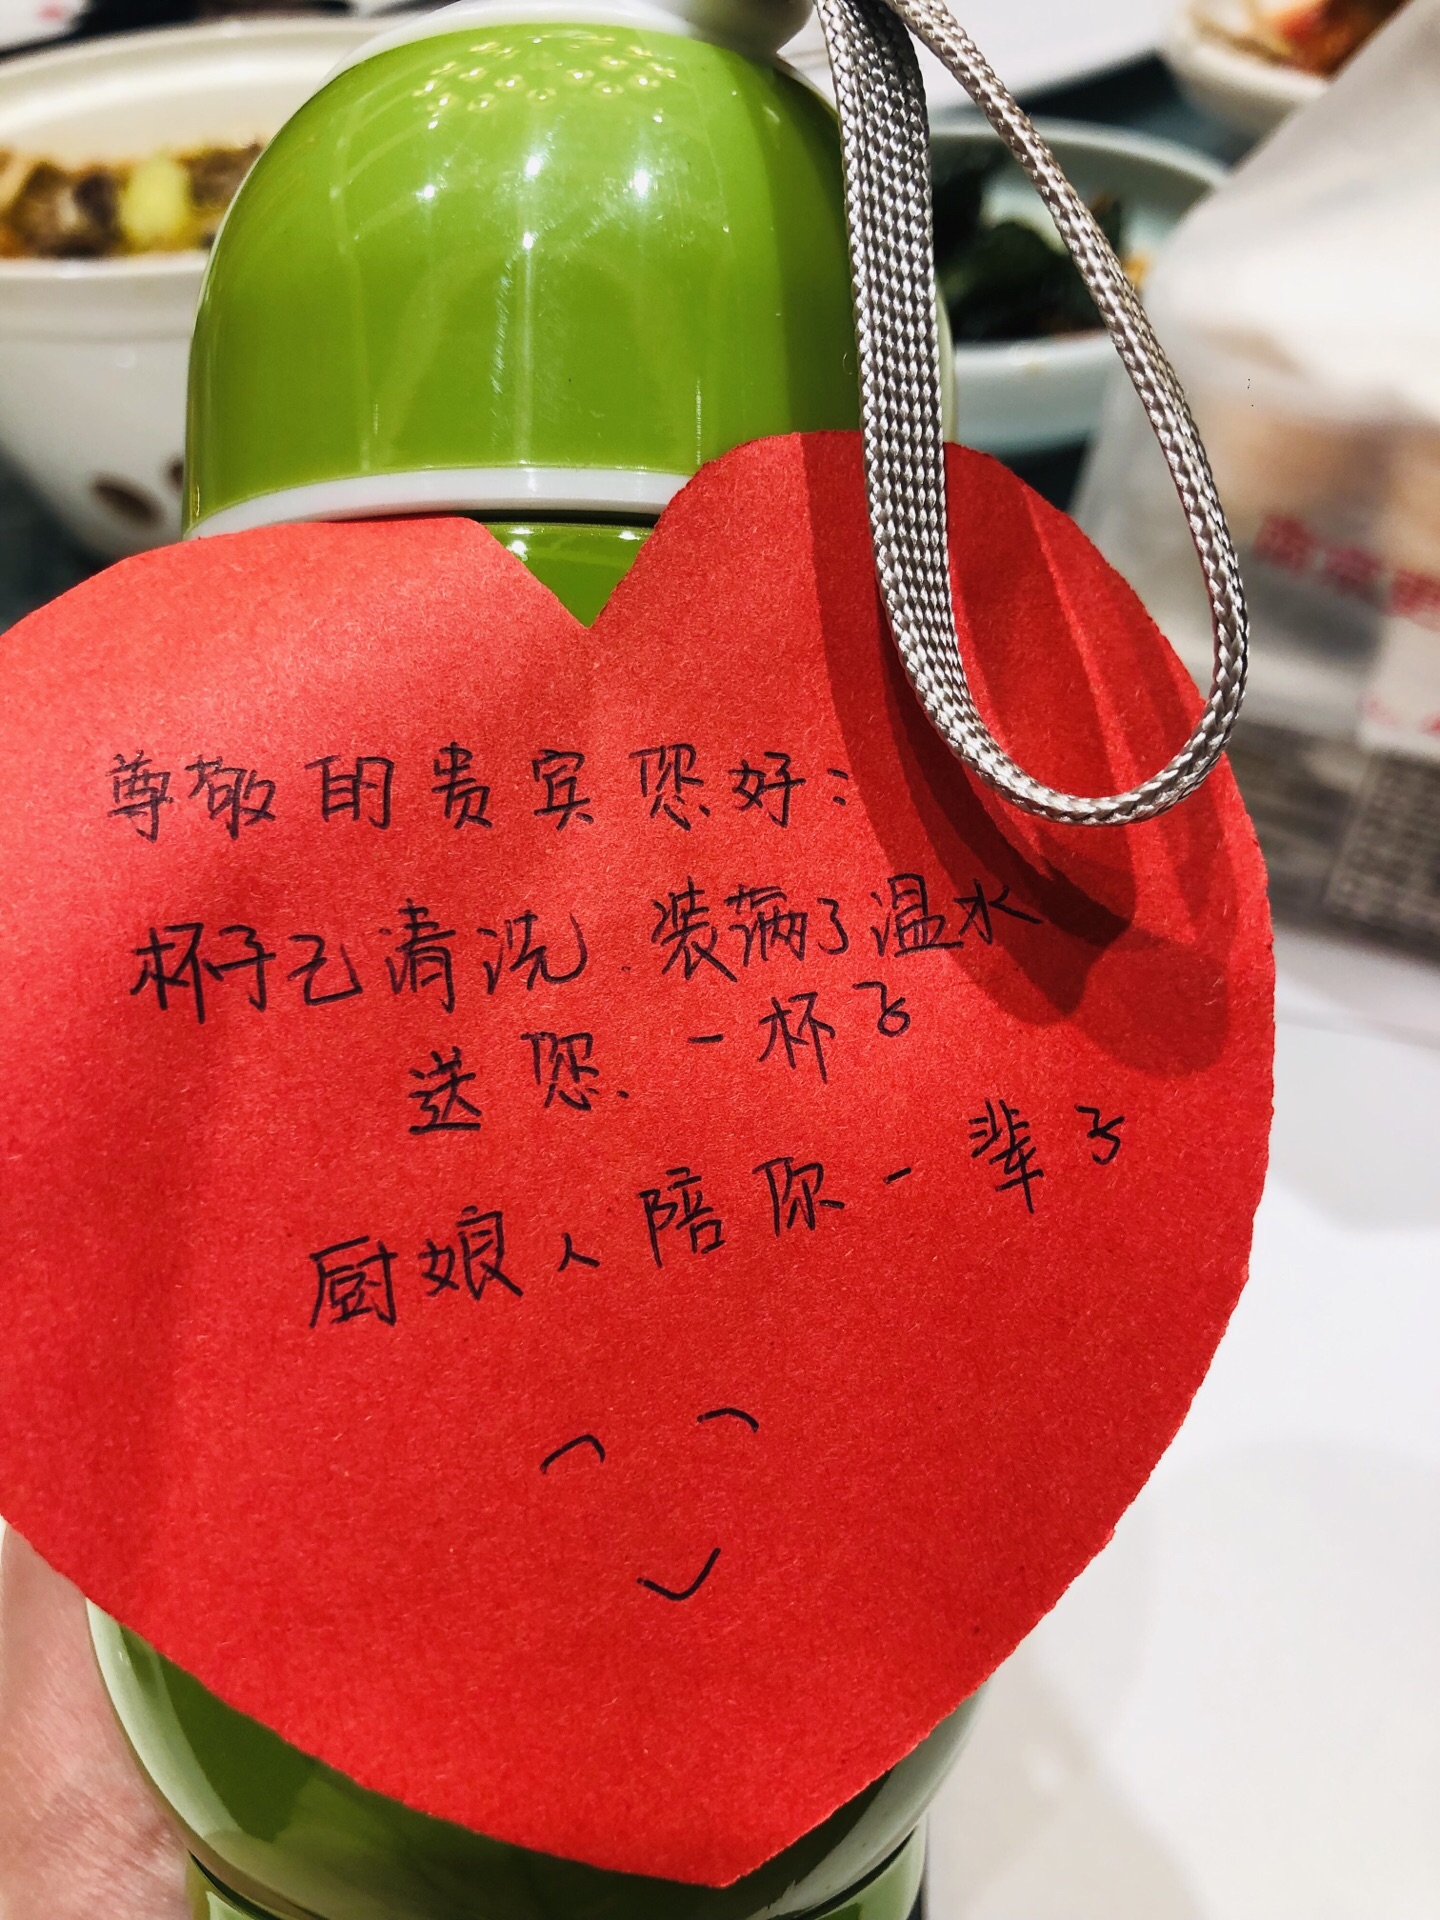 尊敬的贵宾您好：
杯子已清洗.装满了温水
送您.一杯子
厨娘人陪你一辈子